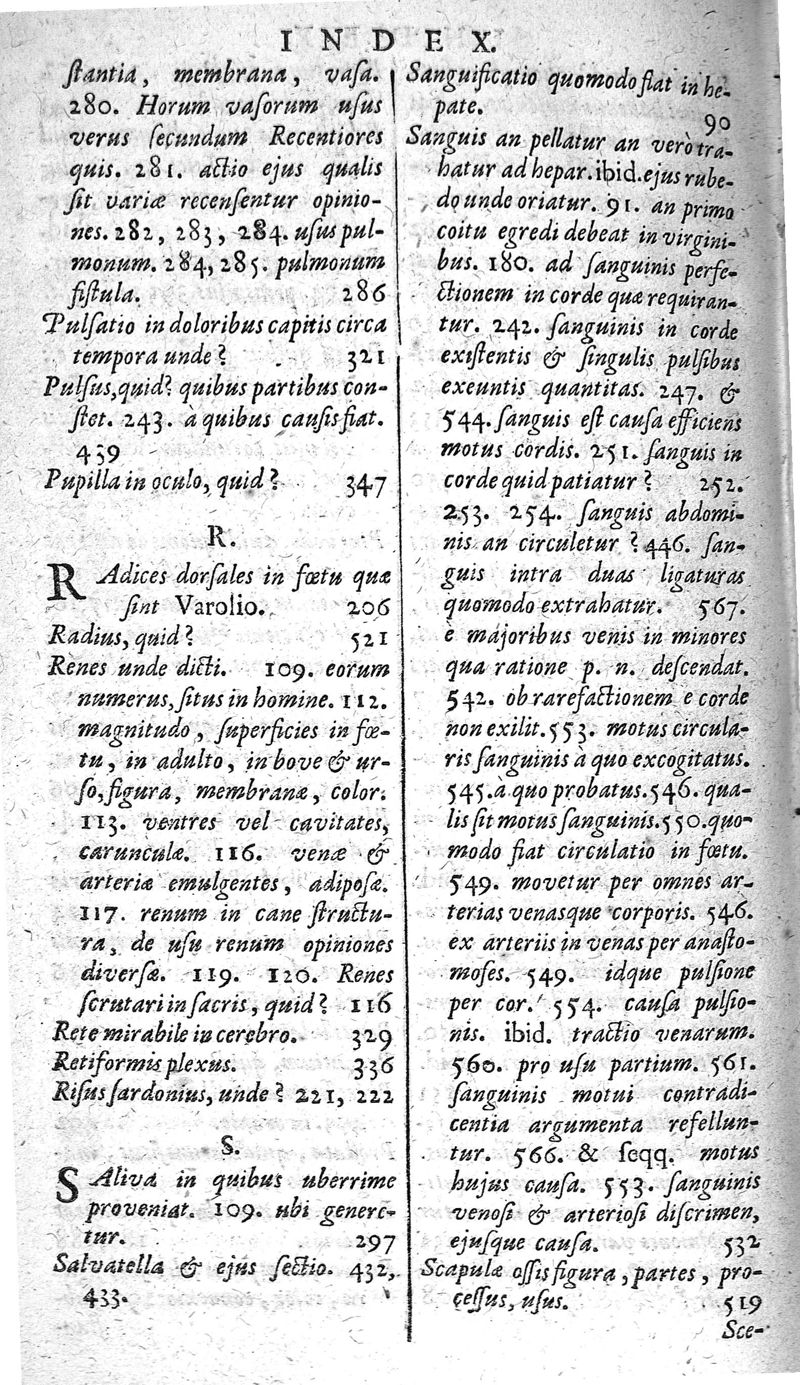 INDEX.
ſtantia, membrana, vaſa.
280. Horum vaſorum uſus
verus ſecundum Recentiores
quis. 281. actio ejus qualis
ſit variæ recenſentur opinio-
nes. 282, 283, 284. uſus pul-
monum. 284, 285. pulmonum
fiſtula. 286
Pulſatio in doloribus capitis circa
tempora unde? 321
Pulſus, quid? quibus partibus con-
ſtet. 243. à quibus cauſis fiat.
439
Pupilla in oculo, quid? 347
R.
RAdices dorſales in fœtu quæ
ſint Varolio. 206
Radius, quid? 521
Renes unde dicti. 109. eorum
numerus, ſitus in homine. 112.
magnitudo, ſuperficies in fœ-
tu, in adulto, in bove & ur-
ſo, figura, membranæ, color.
113. ventres vel cavitates,
carunculæ. 116. venæ &
arteriæ emulgentes, adipoſæ.
117. renum in cane ſtructu-
ra, de uſu renum opiniones
diverſæ. 119. 120. Renes
ſcrutari in ſacris, quid? 116
Rete mirabile in cerebro. 329
Retiformis plexus. 336
Riſus ſardonius, unde? 221, 222
S.
SAliva in quibus uberrime
proveniat. 109. ubi genere-
tur. 297
Salvatella & ejus ſectio. 432,
433.
Sanguificatio quomodo fiat in he-
pate. 90
Sanguis an pellatur an verò tra-
hatur ad hepar. ibid. ejus rube-
do unde oriatur. 91. an primo
coitu egredi debeat in virgini-
bus. 180. ad ſanguinis perfe-
ctionem in corde quæ requiran-
tur. 242. ſanguinis in corde
exiſtentis & ſingulis pulſibus
exeuntis quantitas. 247. &
544. ſanguis eſt cauſa efficiens
motus cordis. 251. ſanguis in
corde quid patiatur? 252.
253. 254. ſanguis abdomi-
nis an circuletur? 446. ſan-
guis intra duas ligaturas
quomodo extrahatur. 567.
è majoribus venis in minores
qua ratione p. n. deſcendat.
542. ob rarefactionem e corde
non exilit. 553. motus circula-
ris ſanguinis à quo excogitatus.
545. à quo probatus. 546. qua-
lis ſit motus ſanguinis. 550. quo-
modo fiat circulatio in fœtu.
549. movetur per omnes ar-
terias venasque corporis. 546.
ex arteriis in venas per anaſto-
moſes. 549. idque pulſione
per cor. 554. cauſa pulſio-
nis. ibid. tractio venarum.
560. pro uſu partium. 561.
ſanguinis motui contradi-
centia argumenta refellun-
tur. 566. & ſeqq. motus
hujus cauſa. 553. ſanguinis
venoſi & arterioſi diſcrimen,
ejuſque cauſa. 532
Scapulæ oſſis figura, partes, pro-
ceſſus, uſus. 519
Sce-